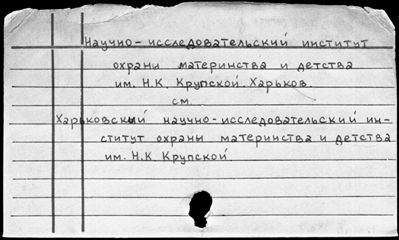 Научно-исследовательский институт
охраны материнства и детства
им. Н.К. Крупской. Харьков.
см.
Харьковский научно-исследовательский ин-
ститут охраны материнства и детства
им. Н.К. Крупской